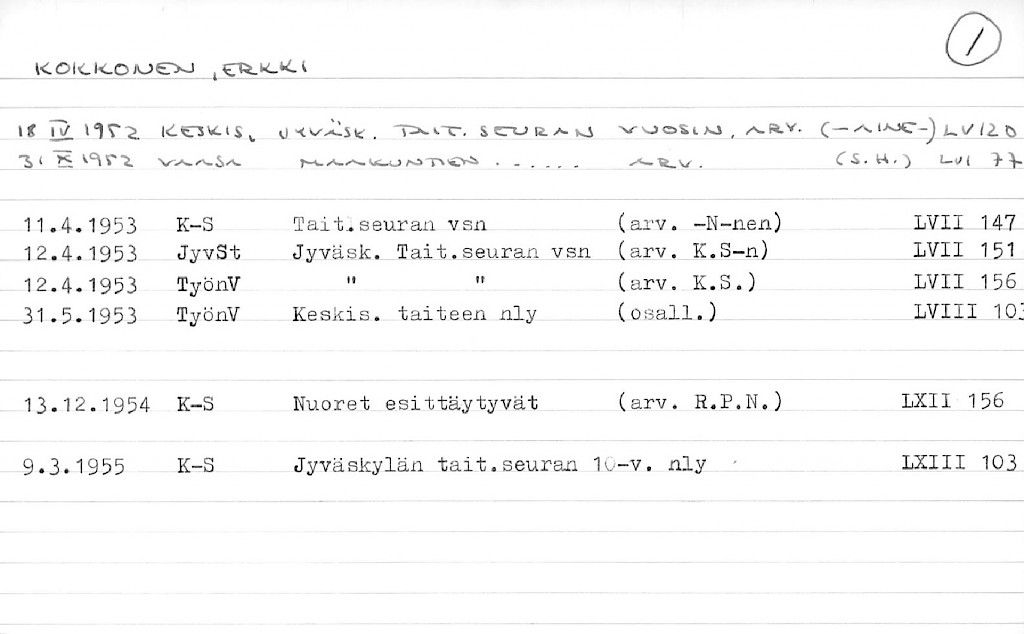 1
KOKKONEN, ERKKI
18 IV 1952 KESKIS. JYVÄSK. TAIT. SEURAN VUOSIN. ARV. (-AINE-) LV 120
31 X 1952 VAASA MAAKUNTIEN ...... ARV. (S.H.) LVI 77
11.4.1953 K-S Tait.seuran vsn (arv. -N-nen) LVII 147
12.4.1953 JyvSt Jyväsk. Tait.seuran vsn (arv. K.S-n) LVII 151
12.4.1953 TyönV " " (arv. K.S.) LVII 156
31.5.1953 TyönV Keskis. taiteen nly (osall.) LVIII 103
13.12.1954 K-S Nuoret esittäytyvät (arv. R.P.N.) LXII 156
9.3.1955 K-S Jyväskylän tait.seuran 10-v. nly LXIII 103